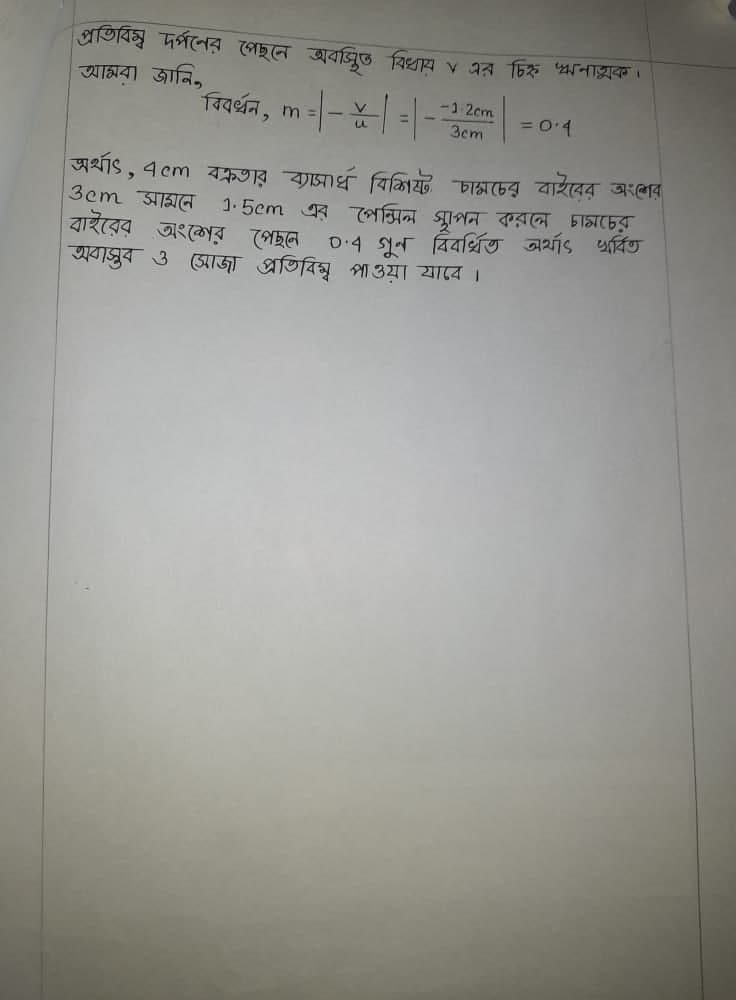 প্রতিবিম্ব দর্পনের পেছনে অবস্থিত বিধায় v এর চিহ্ন ঋনাত্মক।
আমরা জানি,
বিবর্ধন, m = |- v/u| = |- -1.2cm/3cm| = 0.4
অর্থাৎ, 4cm বক্রতার ব্যাসার্ধ বিশিষ্ট চামচের বাইরের অংশের
3cm সামনে 1.5cm এর পেন্সিল স্থাপন করলে চামচের
বাইরের অংশের পেছনে 0.4 গুন বিবর্ধিত অর্থাৎ খর্বিত
অবাস্তব ও সোজা প্রতিবিম্ব পাওয়া যাবে।